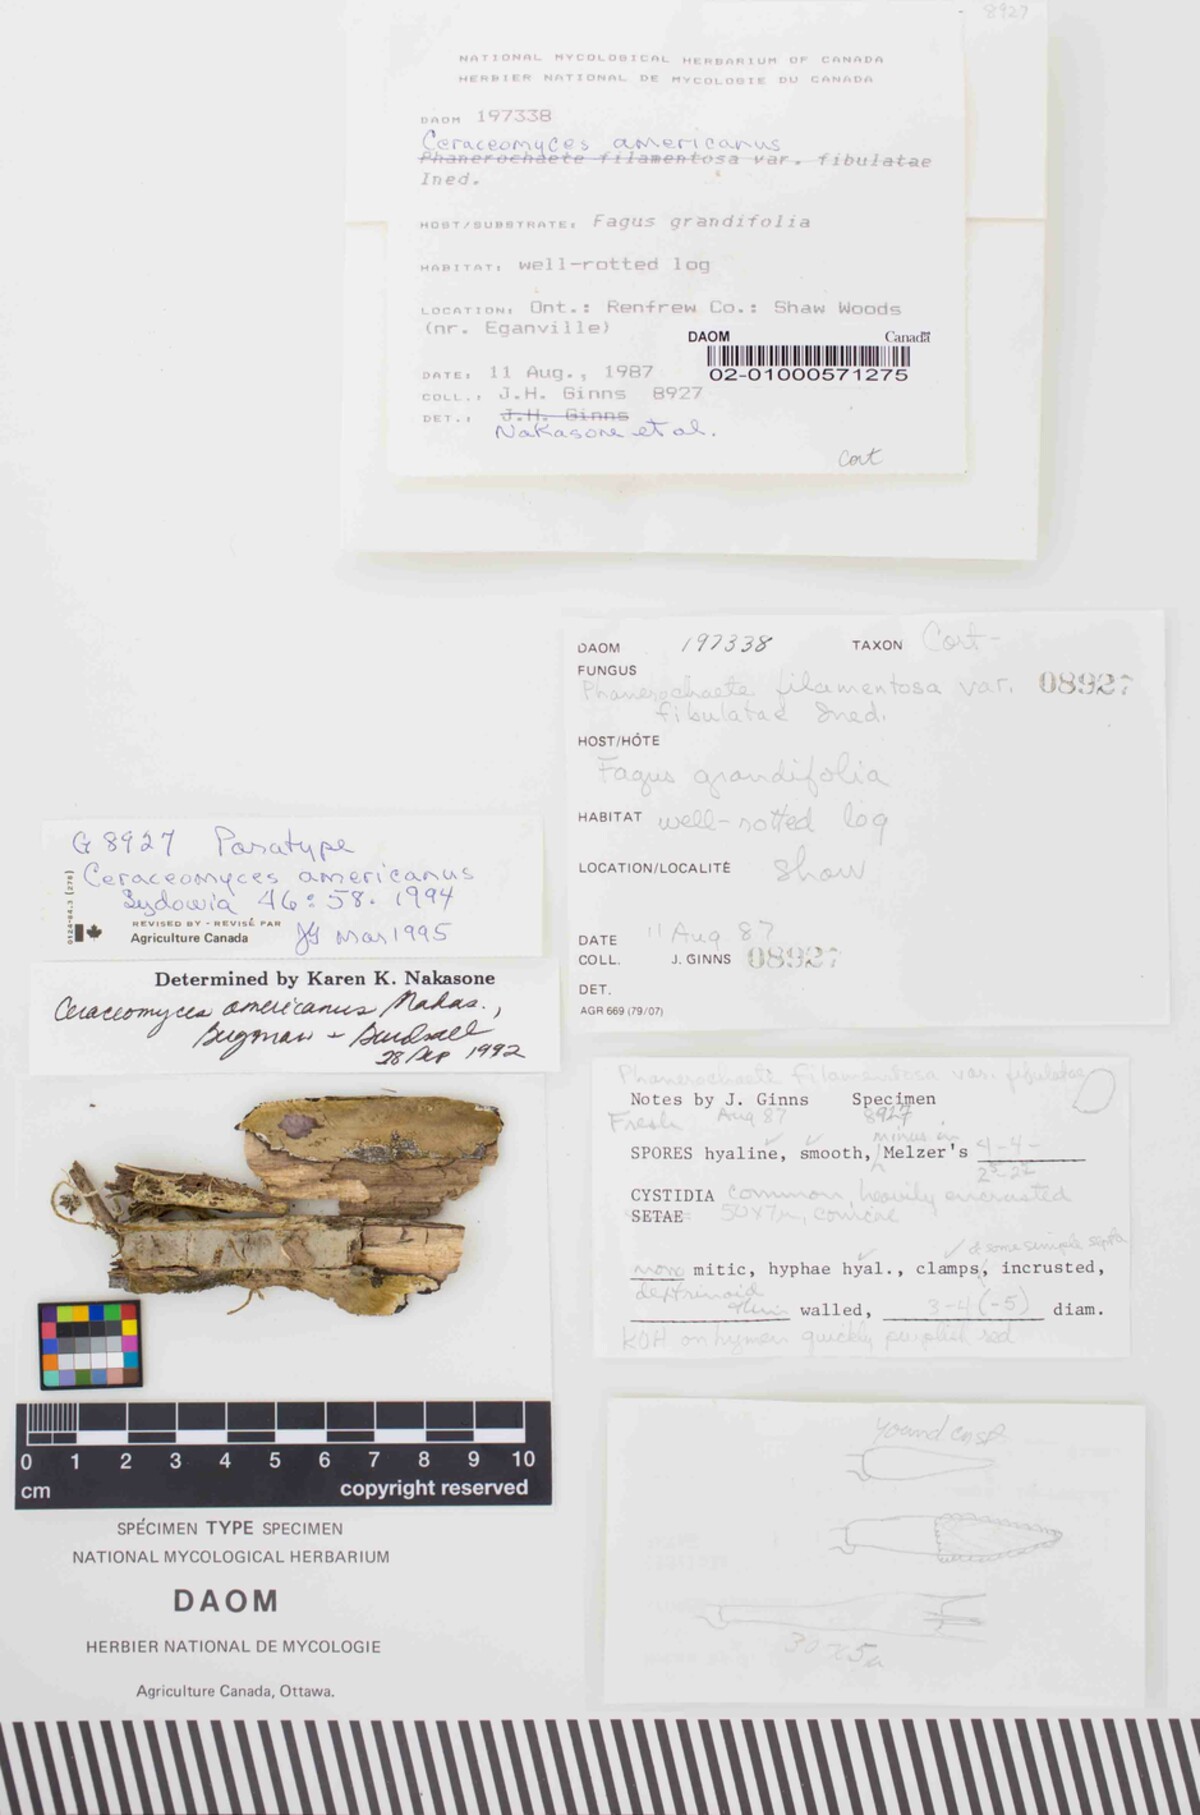 8927
NATIONAL MYCOLOGICAL HERBARIUM OF CANADA
HERBIER NATIONAL DE MYCOLOGIE DU CANADA
DAOM 197338
Ceraceomyces americanus
Phanerochaete filamentosa var. fibulatae
Ined.
HOST/SUBSTRATE: Fagus grandifolia
HABITAT: well-rotted log
LOCATION: Ont.: Renfrew Co.: Shaw Woods
(nr. Eganville)
DAOM Canada
02-01000571275
DATE: 11 Aug., 1987
COLL.: J.H. Ginns 8927
DET.: J.H. Ginns
Nakasone et al.
Cort
DAOM 197338 TAXON Cort-
FUNGUS
Phanerochaete filamentosa var. 08927
fibulatae Ined.
HOST/HÔTE
Fagus grandifolia
HABITAT well-rotted log
LOCATION/LOCALITÉ Shaw
DATE 11 Aug 87
COLL. J. GINNS 08927
DET.
AGR 669 (79/07)
G 8927 Paratype
Ceraceomyces americanus
Sydowia 46:58. 1994
REVISED BY - REVISÉ PAR
Agriculture Canada JG Mar 1995
Determined by Karen K. Nakasone
Ceraceomyces americanus Nakas.,
Bergman + Burdsall
28 Sep 1992
Phanerochaete filamentosa var. fibulatae
Notes by J. Ginns Specimen
Fresh Aug 87 8927
minus in
SPORES hyaline, smooth, Melzer's 4-4-
CYSTIDIA common, heavily encrusted
SETAE 50x7µ, conical
& some simple septa
mono mitic, hyphae hyal., clamps, incrusted,
dextrinoid
thin walled, 3-4(-5) diam.
KOH on hymen quickly purplish red
0 1 2 3 4 5 6 7 8 9 10
cm copyright reserved
SPÉCIMEN TYPE SPECIMEN
NATIONAL MYCOLOGICAL HERBARIUM
DAOM
HERBIER NATIONAL DE MYCOLOGIE
Agriculture Canada, Ottawa.
30 x 5µ